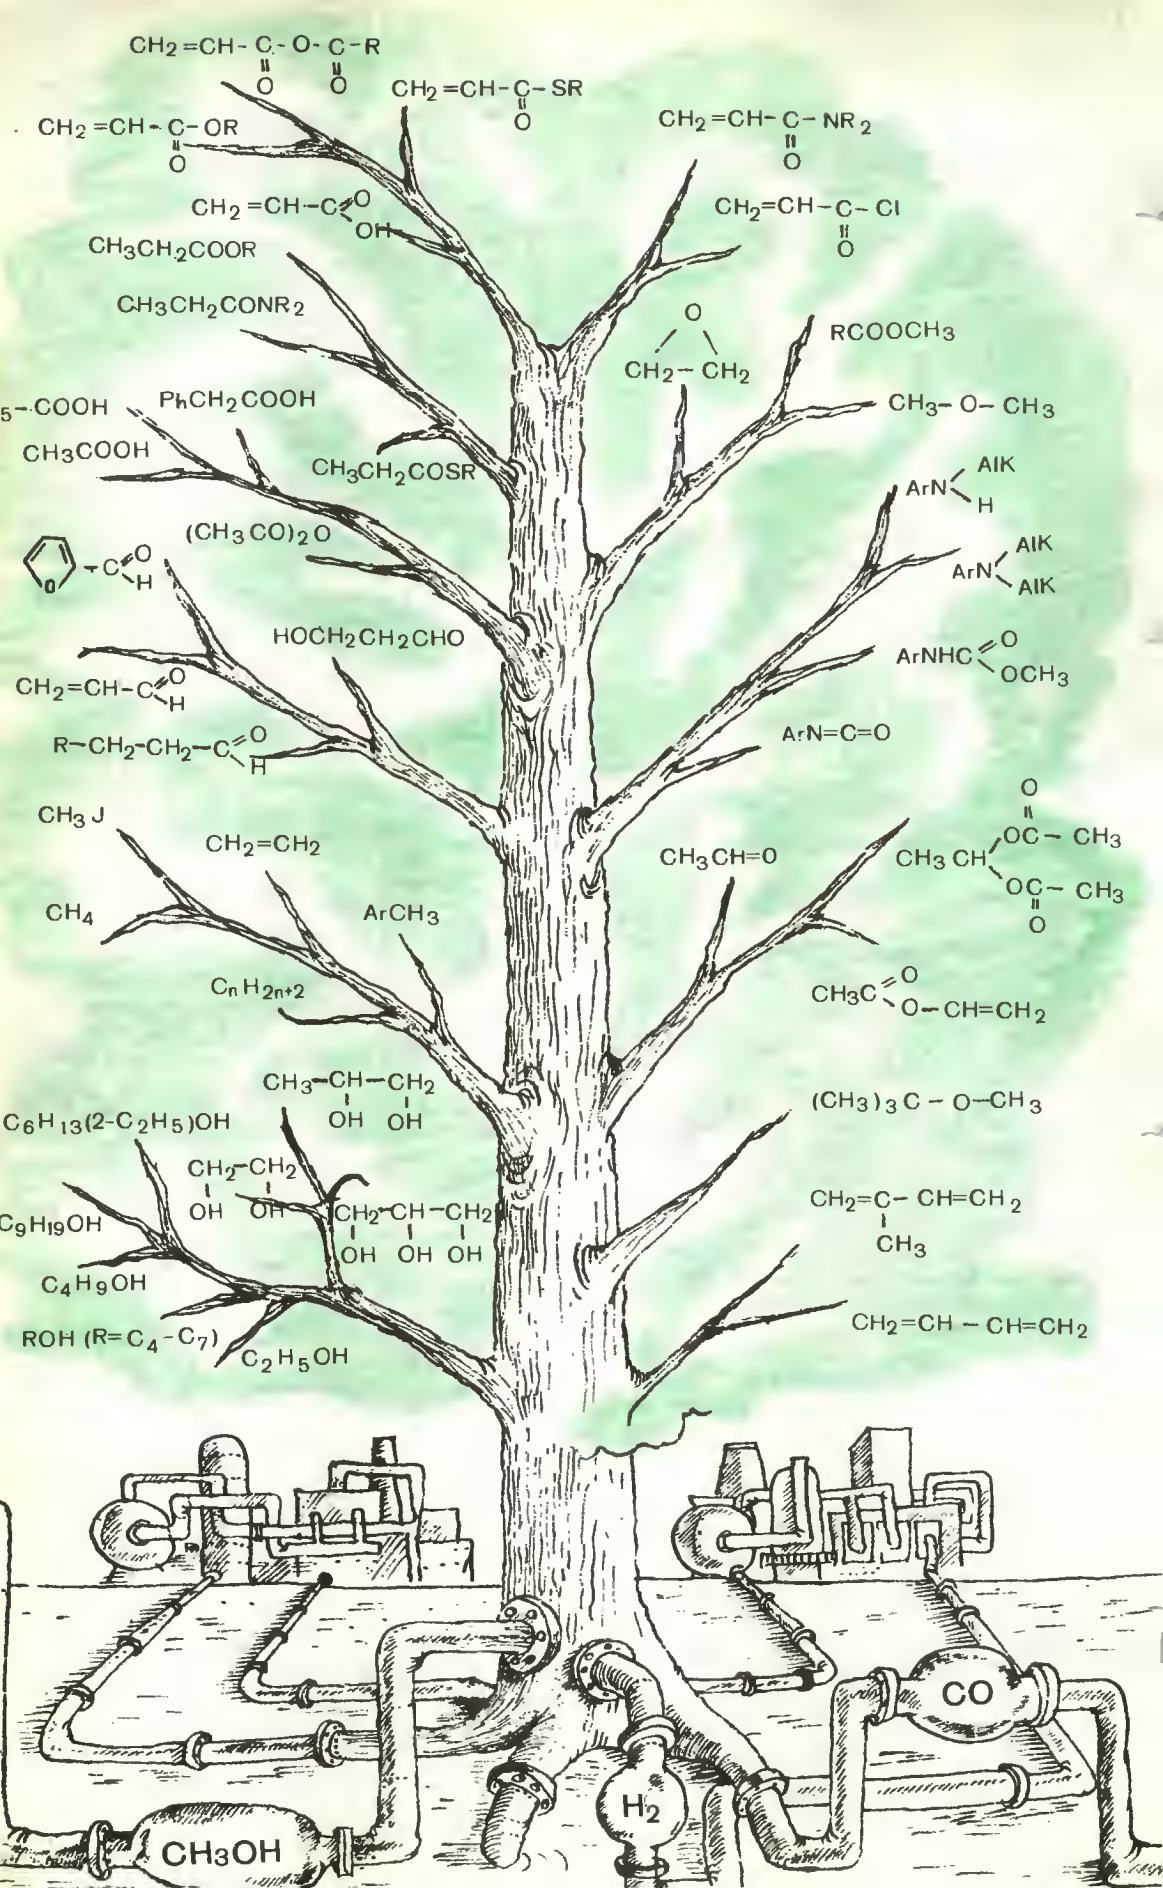 CH2=CH-C-O-C-R
O O
CH2=CH-C-SR
O
CH2=CH-C-OR
O
CH2=CH-C-NR2
O
CH2=CH-C=O
OH
CH2=CH-C-Cl
O
CH3CH2COOR
CH3CH2CONR2
O
CH2-CH2
RCOOCH3
5-COOH
PhCH2COOH
CH3-O-CH3
CH3COOH
CH3CH2COSR
ArN AlK
H
(CH3CO)2O
O -C=O
H
ArN AlK
AlK
HOCH2CH2CHO
ArNHC=O
OCH3
CH2=CH-C=O
H
R-CH2-CH2-C=O
H
ArN=C=O
CH3J
CH2=CH2
CH3CH=O
O
OC-CH3
CH3CH
OC-CH3
O
CH4
ArCH3
CnH2n+2
CH3C=O
O-CH=CH2
CH3-CH-CH2
OH OH
(CH3)3C-O-CH3
C6H13(2-C2H5)OH
CH2-CH2
OH OH
CH2-CH-CH2
OH OH OH
CH2=C-CH=CH2
CH3
C9H19OH
C4H9OH
ROH (R=C4-C7)
C2H5OH
CH2=CH-CH=CH2
CO
H2
CH3OH